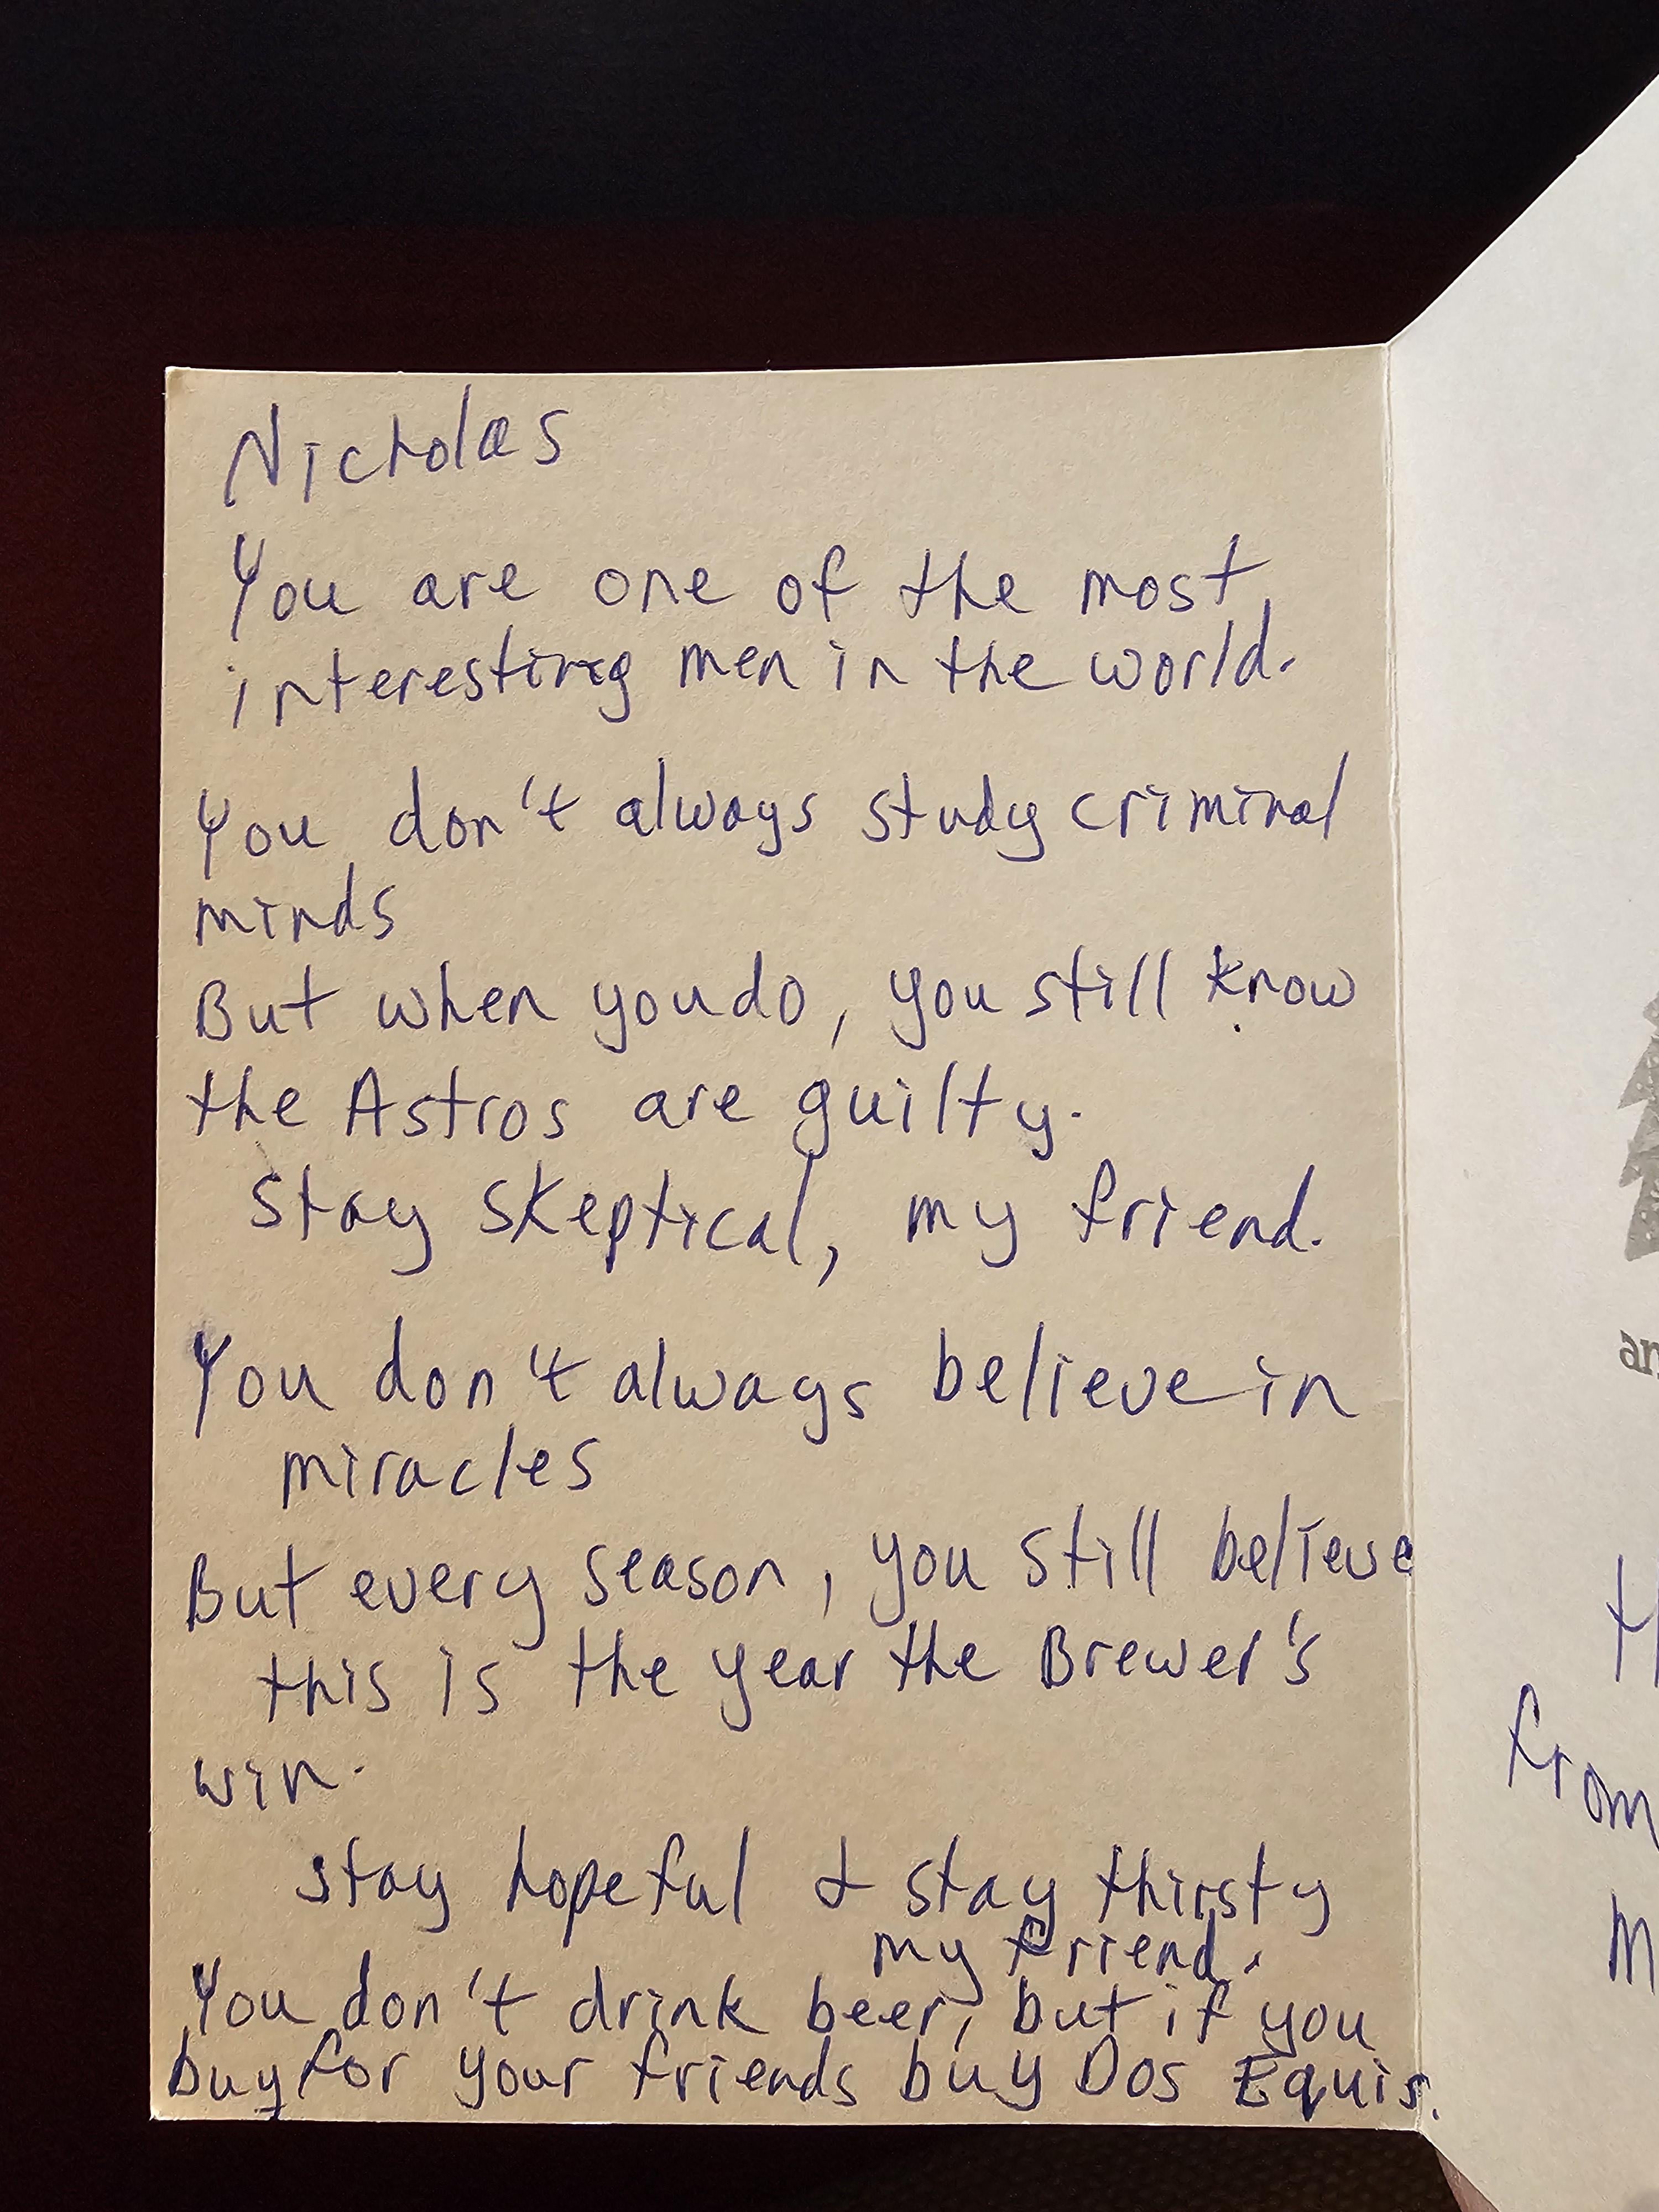 Nicholas
You are one of the most
interesting men in the world.
You don't always study criminal
minds
But when you do, you still know
the Astros are guilty.
Stay skeptical, my friend.
You don't always believe in
miracles
But every season, you still believe
this is the year the Brewer's
win.
stay hopeful & stay thirsty
my friend.
You don't drink beer, but if you
buy for your friends buy Dos Equis.
from